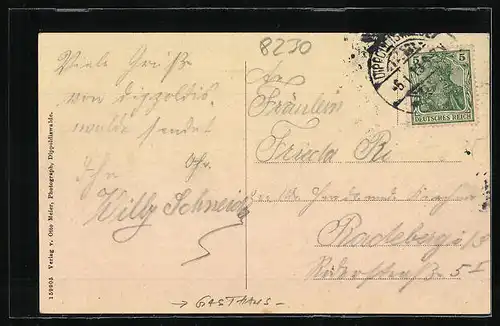 8230
Viele Grüße
von Dippoldis-
walde sendet
Ihr
Willy Schneider
An
Fräulein
Frieda
Radeberg i/S
Röderstraße 5 I
5 5
DEUTSCHES REICH
159905 Verlag v. Otto Meier, Photograph, Dippoldiswalde.
→ GASTHAUS -